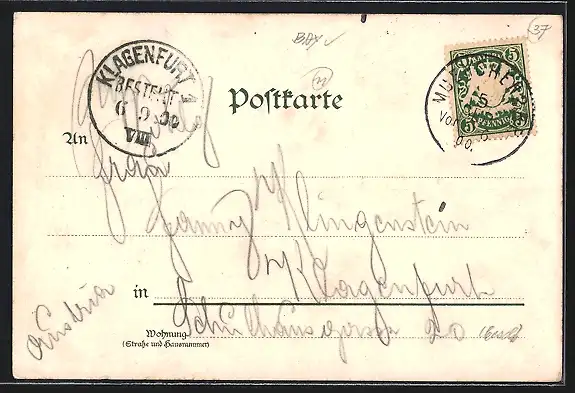 37
BAY
KLAGENFURT 1
BESTELLT
6 9 00
VIII
Postkarte
BAYERN
5 5
5 PFENNIG 5
MUENCHEN
5
Vor
00.
An
Frau
Fanny Klingenstein
in Klagenfurt
Austria
Schulhausgasse 20
Wohnung
(Straße und Hausnummer)